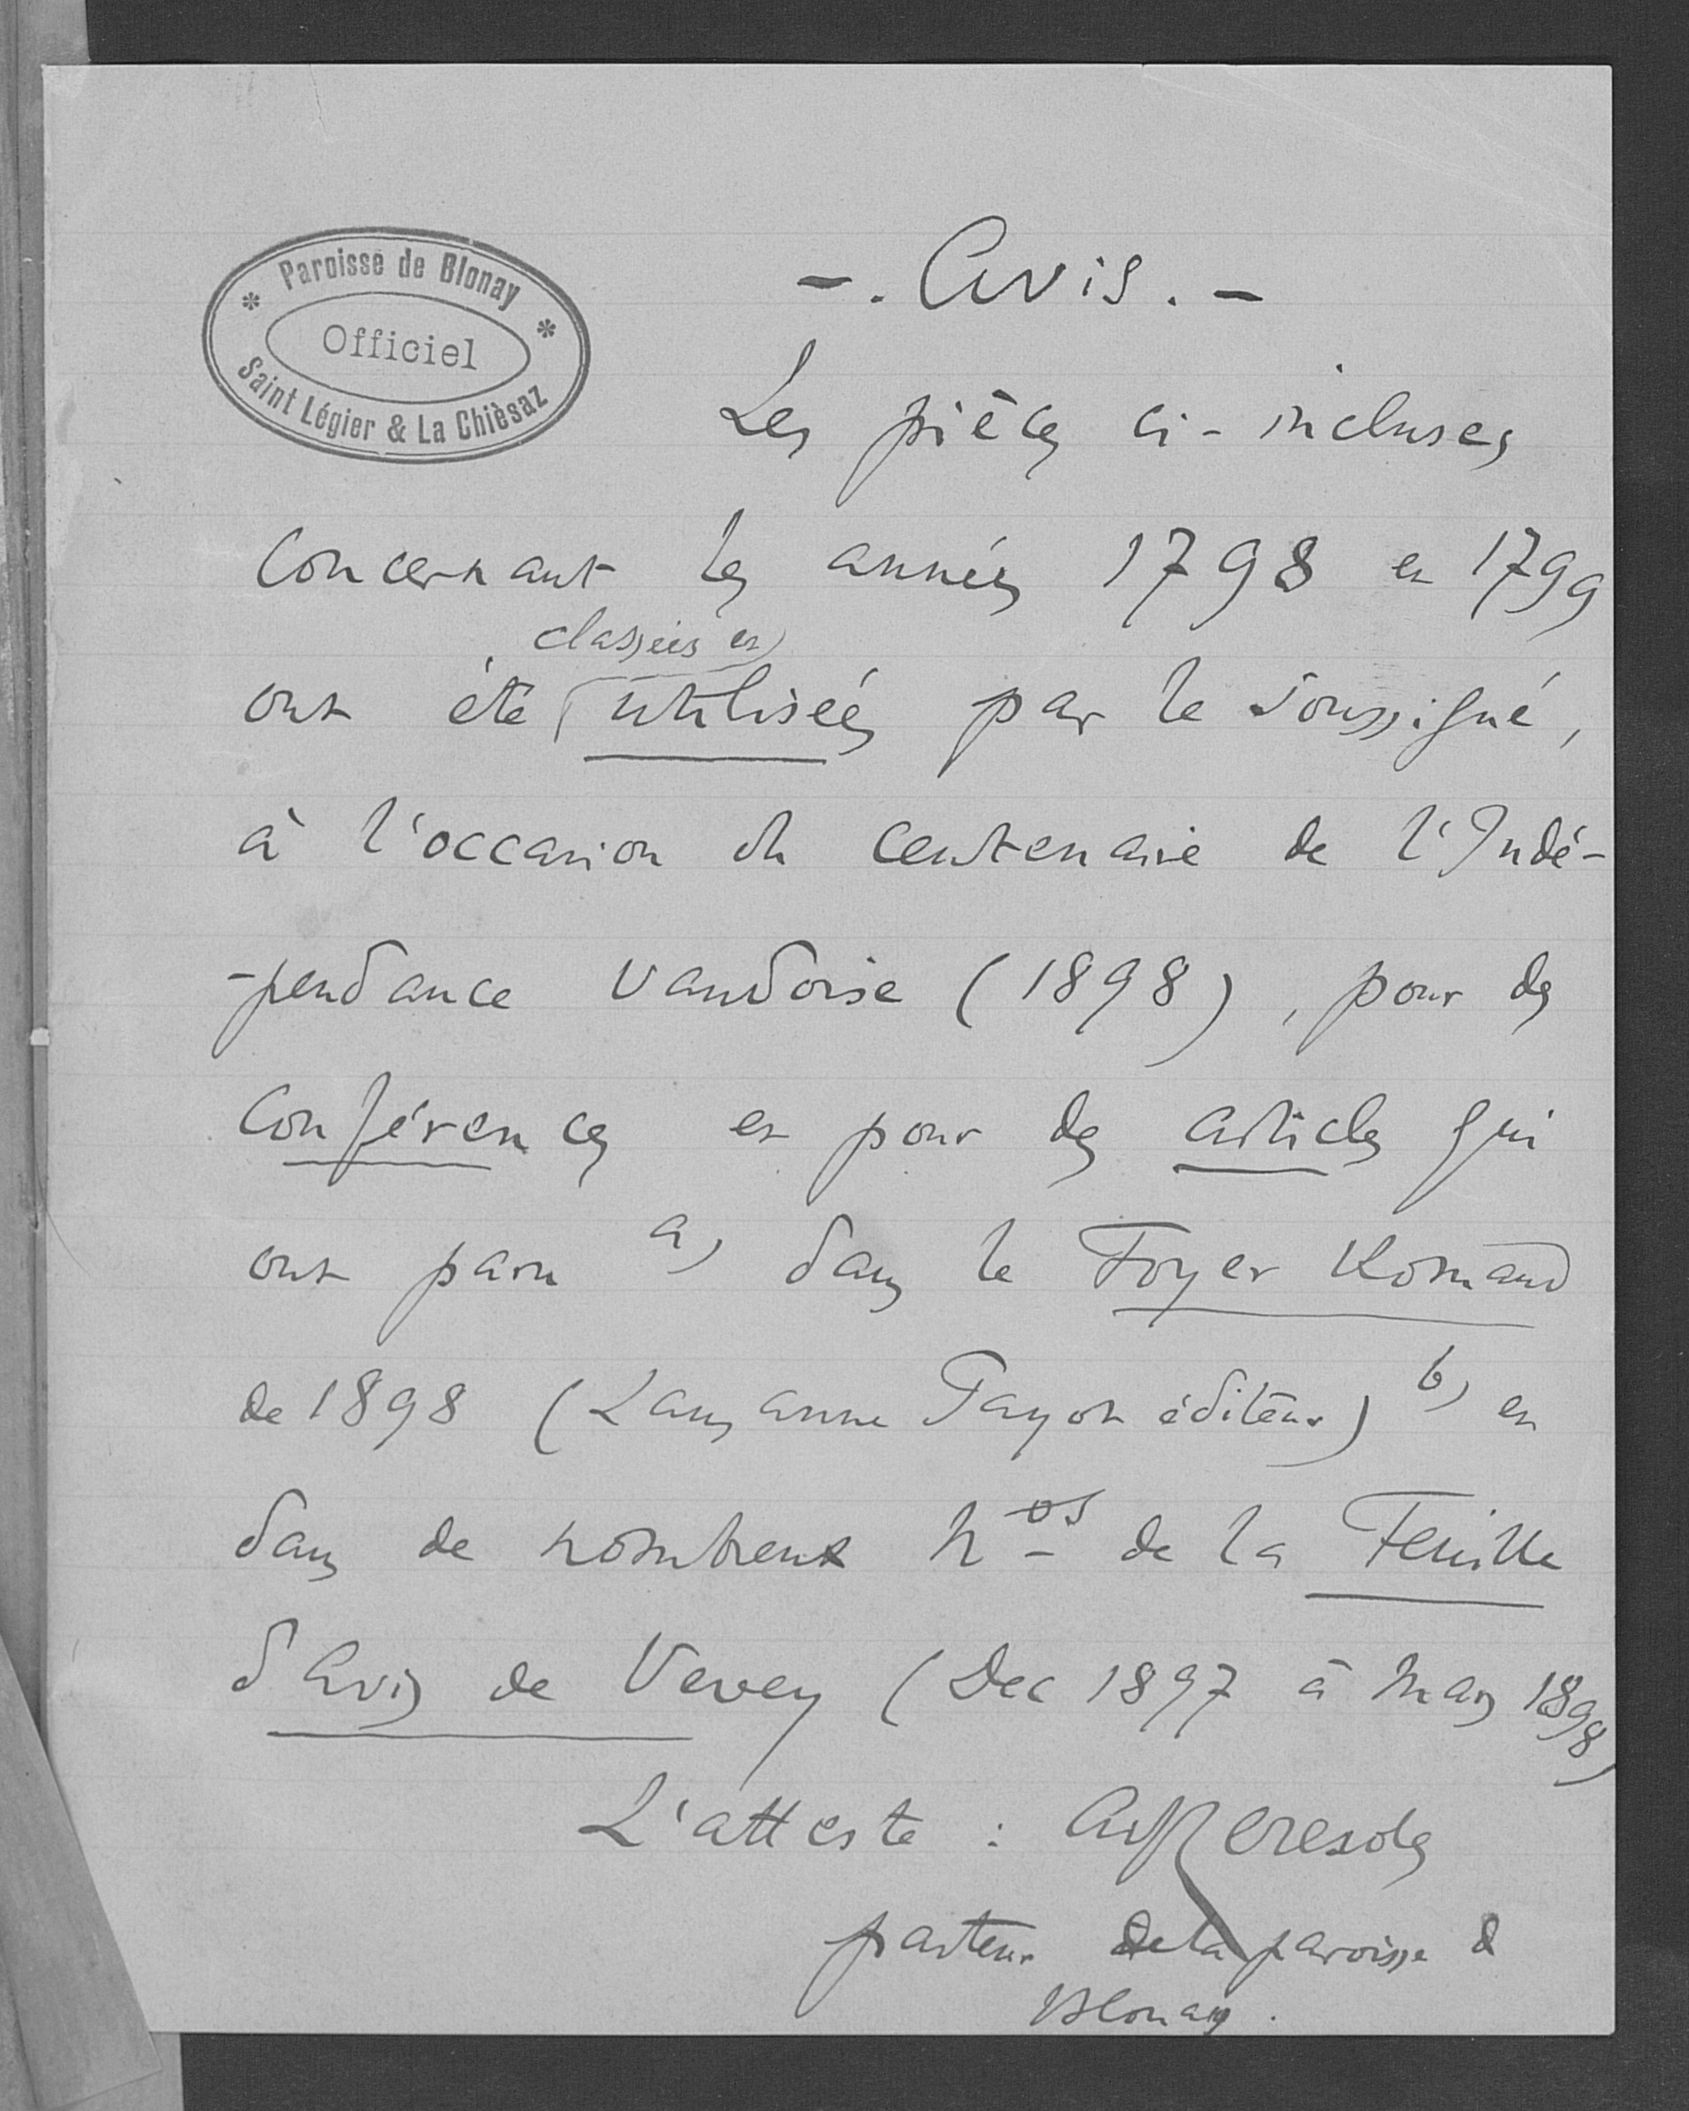 Paroisse de Blonay
Officiel
Saint Légier & La Chièsaz
- . Avis . -
Les pièces ci-incluses
concernant les années 1798 et 1799
classées et
ont été utilisées par le soussigné,
à l'occasion du centenaire de l'Indé-
-pendance vaudoise (1898), pour des
conférences et pour des articles qui
ont paru a) dans le Foyer Romand
de 1898 (Lausanne Payot éditeur) b) et
dans de nombreux nos de la Feuille
d'Avis de Vevey (Dec 1897 à Mars 1898)
L'atteste : Ceresole
pasteur de la paroisse de
Blonay.